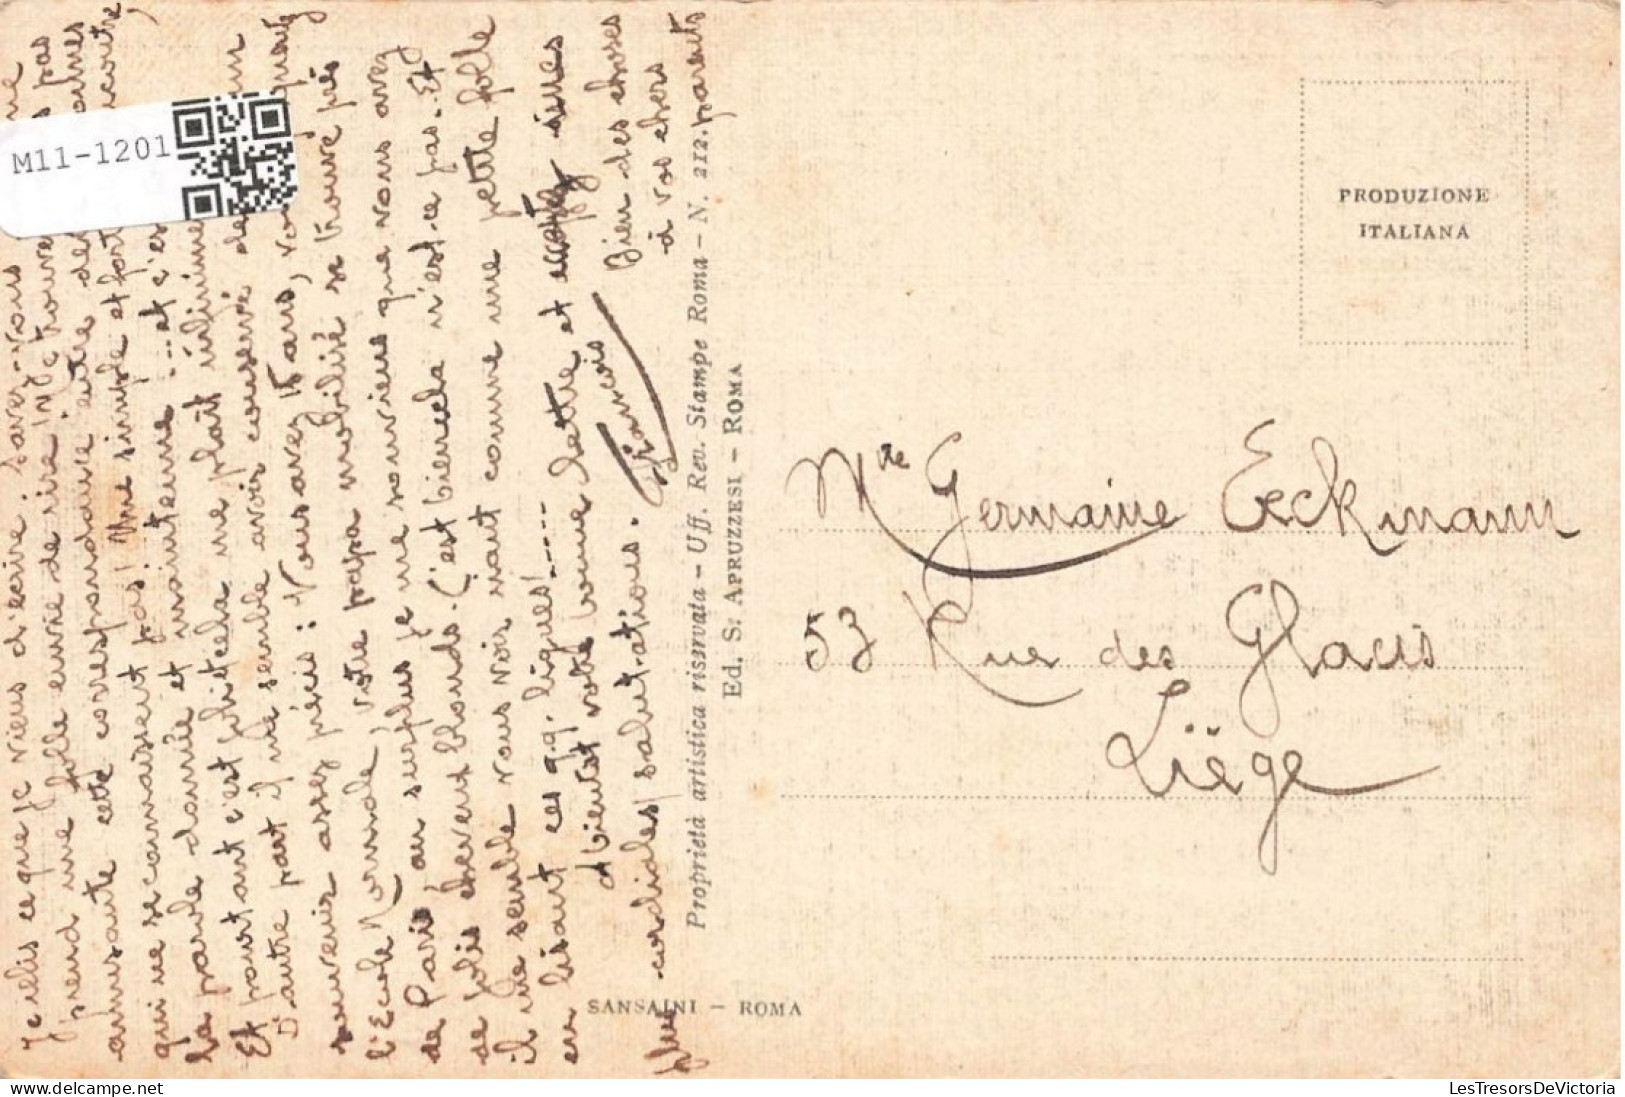 Je relis ce que je viens d'écrire : savez-vous
prend une folle envie de rire ! Ne trouve pas
amusante cette correspondance entre de
qui ne se connaissent pas ! Une simple et fort
la parole donnée et maintenue ... et c'es
Et pourtant c'est fait et cela me plaît infinime
D'autre part il me semble avoir conservé de
souvenir assez précis : Vous avez 15 ans, vo
l'Ecole Normale, votre papa mobilisé se trouve près
de Paris, au surplus je me souviens que vous avez
de jolis cheveux blonds. C'est bien cela n'est-ce pas. Et
il me semble vous voir riant comme une petite folle
en lisant ces qq. lignes! -----
A bientôt votre bonne lettre et mes
plus cordiales salutations.
François
Bien des choses
à vos chers
parents
M11-1201
Proprietà artistica riservata - Uff. Rev. Stampe Roma - N. 212.
Ed. S. APRUZZESI - ROMA
SANSAINI - ROMA
PRODUZIONE
ITALIANA
Mlle Germaine Eeckmann
53 Rue des Glacis
Liège
LesTresorsDeVictoria